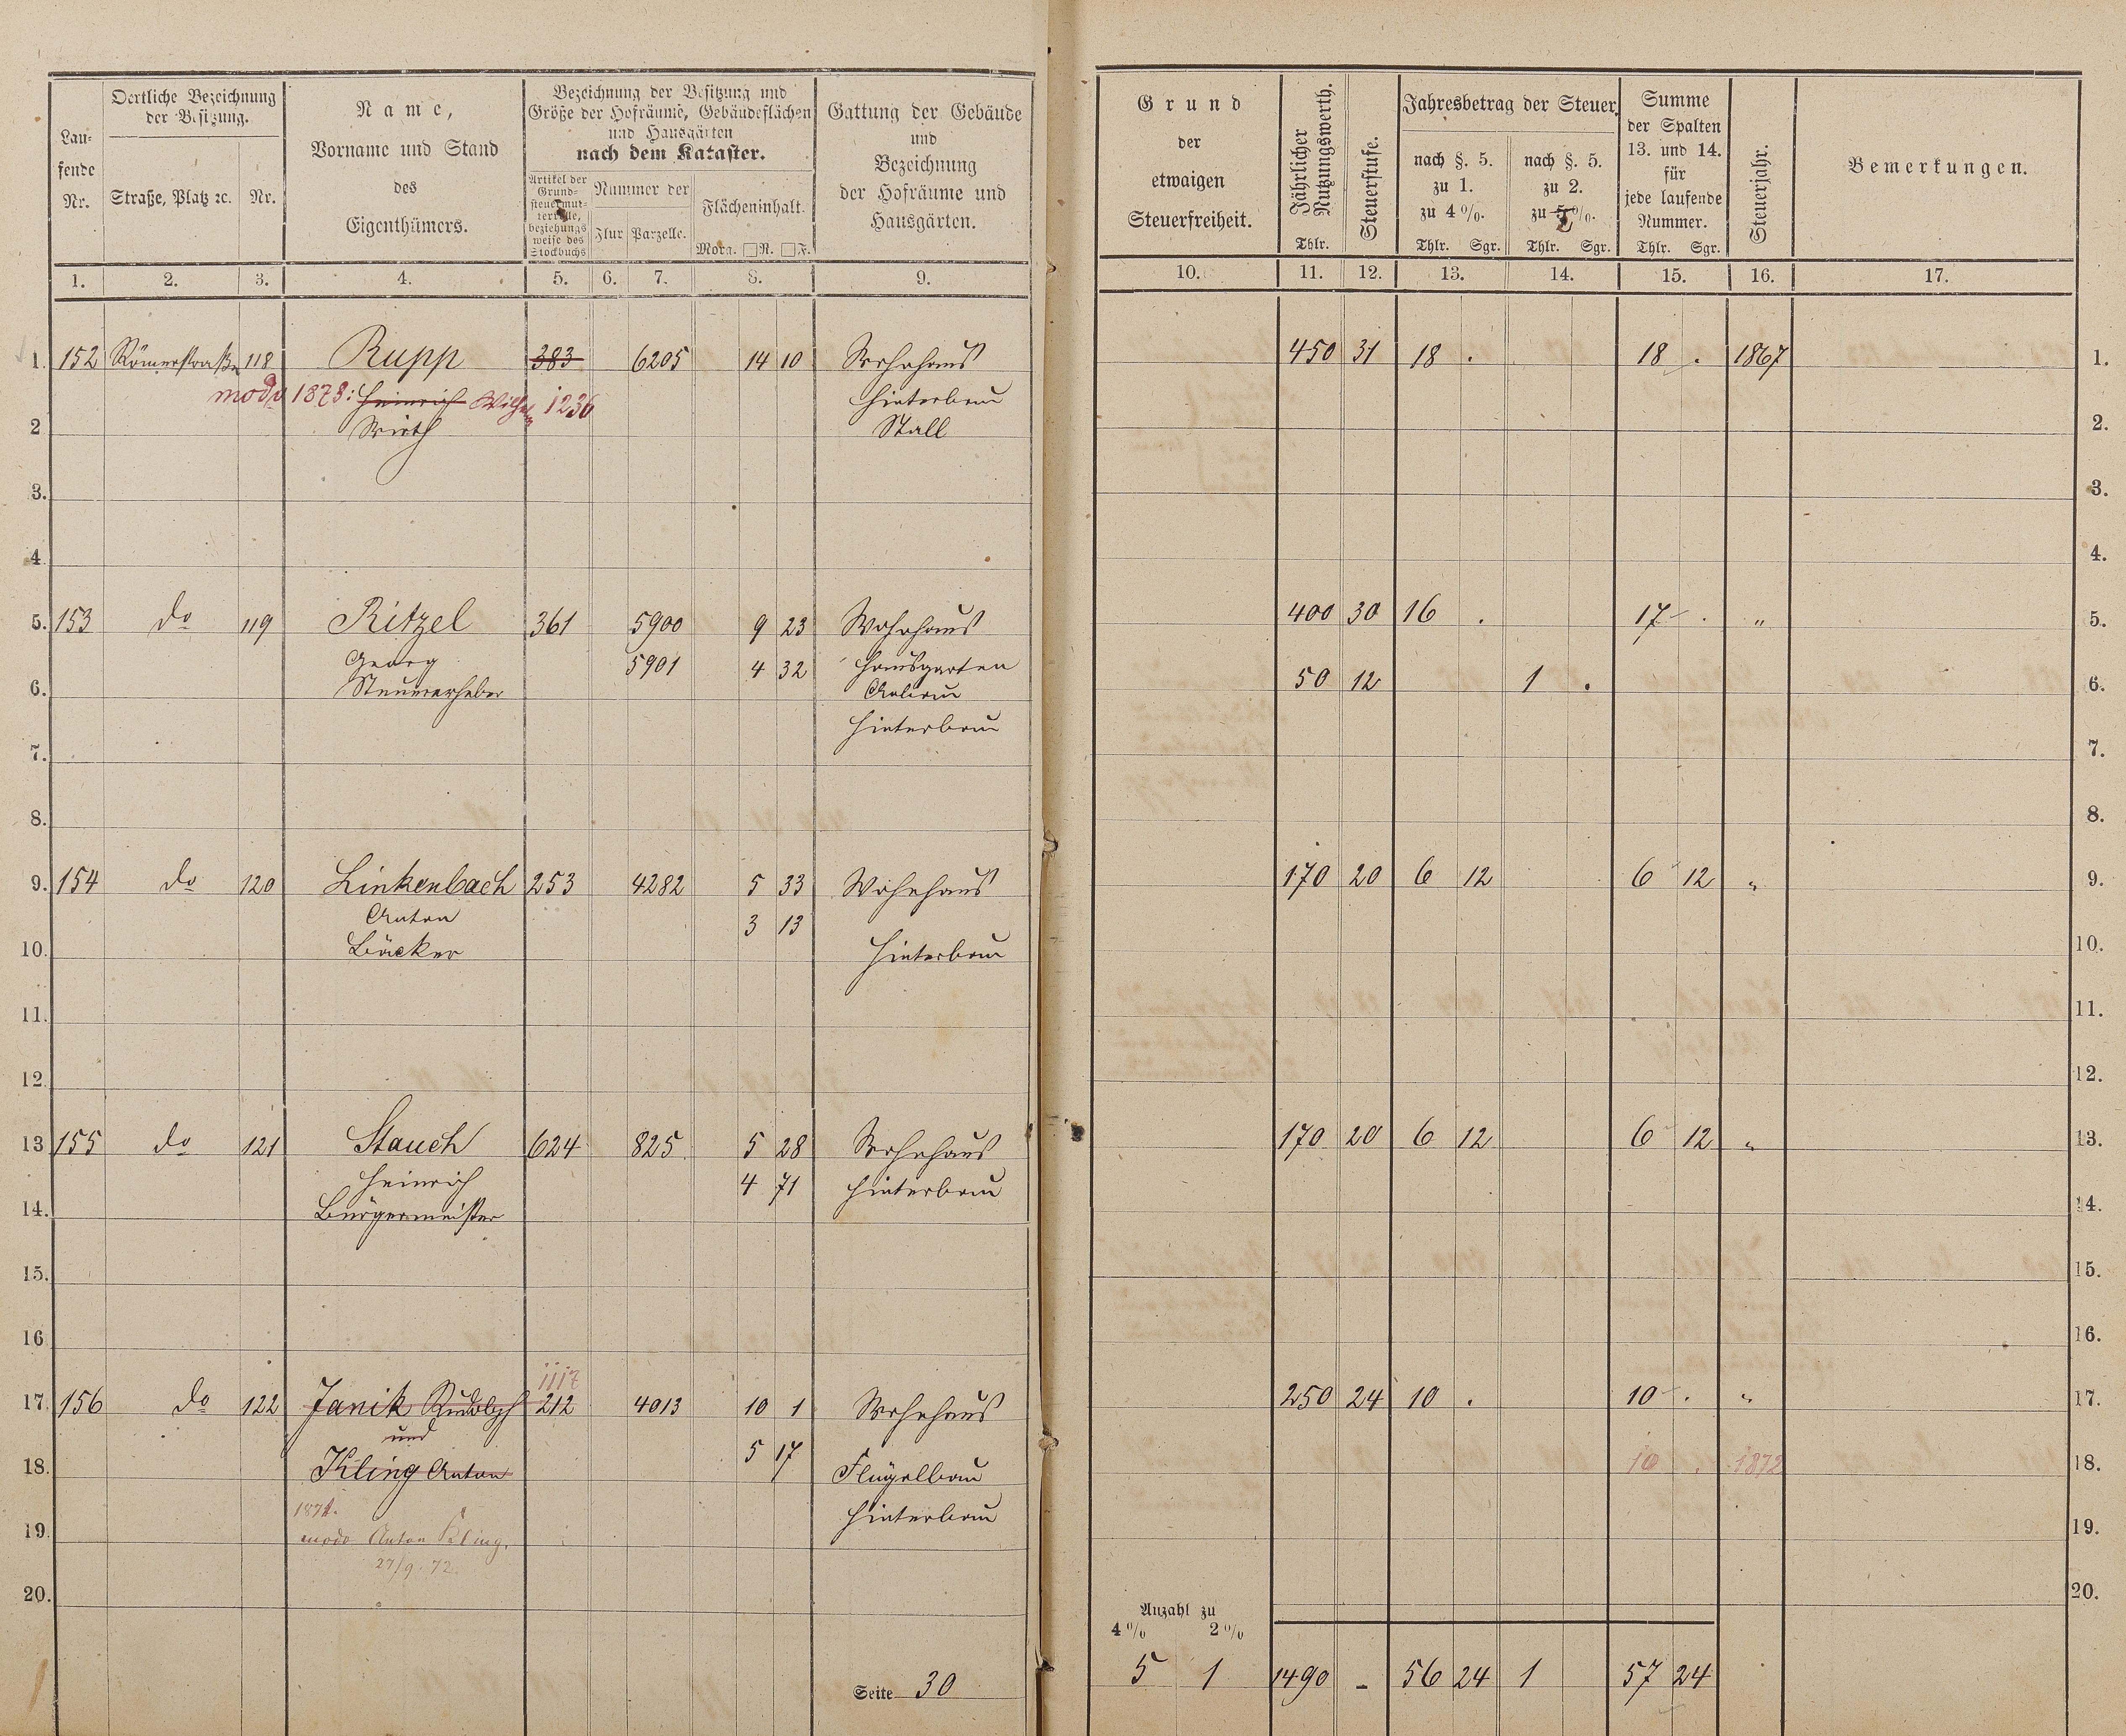 Oertliche Bezeichnung der Besitzung.
Lau-
fende
Nr.
Straße, Platz ꝛc.
Nr.
Name,
Vorname und Stand
des
Eigenthümers.
Bezeichnung der Besitzung und
Größe der Hofräume, Gebäudeflächen
und Hausgärten
nach dem Kataster.
Artikel der
Grund-
steuermut-
terrolle,
beziehungs
weise des
Stockbuchs
Nummer der
Flur
Parzelle.
Flächeninhalt.
Morg. □R. □F.
Gattung der Gebäude
und
Bezeichnung
der Hofräume und
Hausgärten.
Grund
der
etwaigen
Steuerfreiheit.
Jährlicher
Nutzungswerth.
Thlr.
Steuerstufe.
Jahresbetrag der Steuer.
nach §. 5.
zu 1.
zu 4%.
Thlr. Sgr.
nach §. 5.
zu 2.
zu 2%.
Thlr. Sgr.
Summe
der Spalten
13. und 14.
für
jede laufende
Nummer.
Thlr. Sgr.
Steuerjahr.
Bemerkungen.
1. 2. 3. 4. 5. 6. 7. 8. 9. 10. 11. 12. 13. 14. 15. 16. 17.
1. 152 Römerstraße 118 Rupp 383 6205 14 10 Wohnhaus 450 31 18 . 18 . 1867 1.
modo 1873: Heinrich Wilhelm 1236 Hinterbau
2 Wirth Stall 2.
3. 3.
4. 4.
5. 153 do 119 Ritzel 361 5900 9 23 Wohnhaus 400 30 16 . 17 . " 5.
Georg 5901 4 32 Hausgarten
6. Steuererheber Anbau 50 12 1 . 6.
Hinterbau
7. 7.
8. 8.
9. 154 do 120 Linkenbach 253 4282 5 33 Wohnhaus 170 20 6 12 6 12 " 9.
Anton 3 13
10. Bäcker Hinterbau 10.
11. 11.
12. 12.
13 155 do 121 Stauch 624 825 5 28 Wohnhaus 170 20 6 12 6 12 " 13.
Heinrich 4 71 Hinterbau
14. Bürgermeister 14.
15. 15.
16 16.
1117
17. 156 do 122 Janik Rudolph 212 4013 10 1 Wohnhaus 250 24 10 . 10 . " 17.
und 5 17
18. Kling Anton Flügelbau 10 . 1872 18.
1871. Hinterbau
19. modo Anton Kling. 19.
27/9. 72.
20. 20.
Anzahl zu
4% 2%
Seite 30 5 1 1490 – 56 24 1 57 24